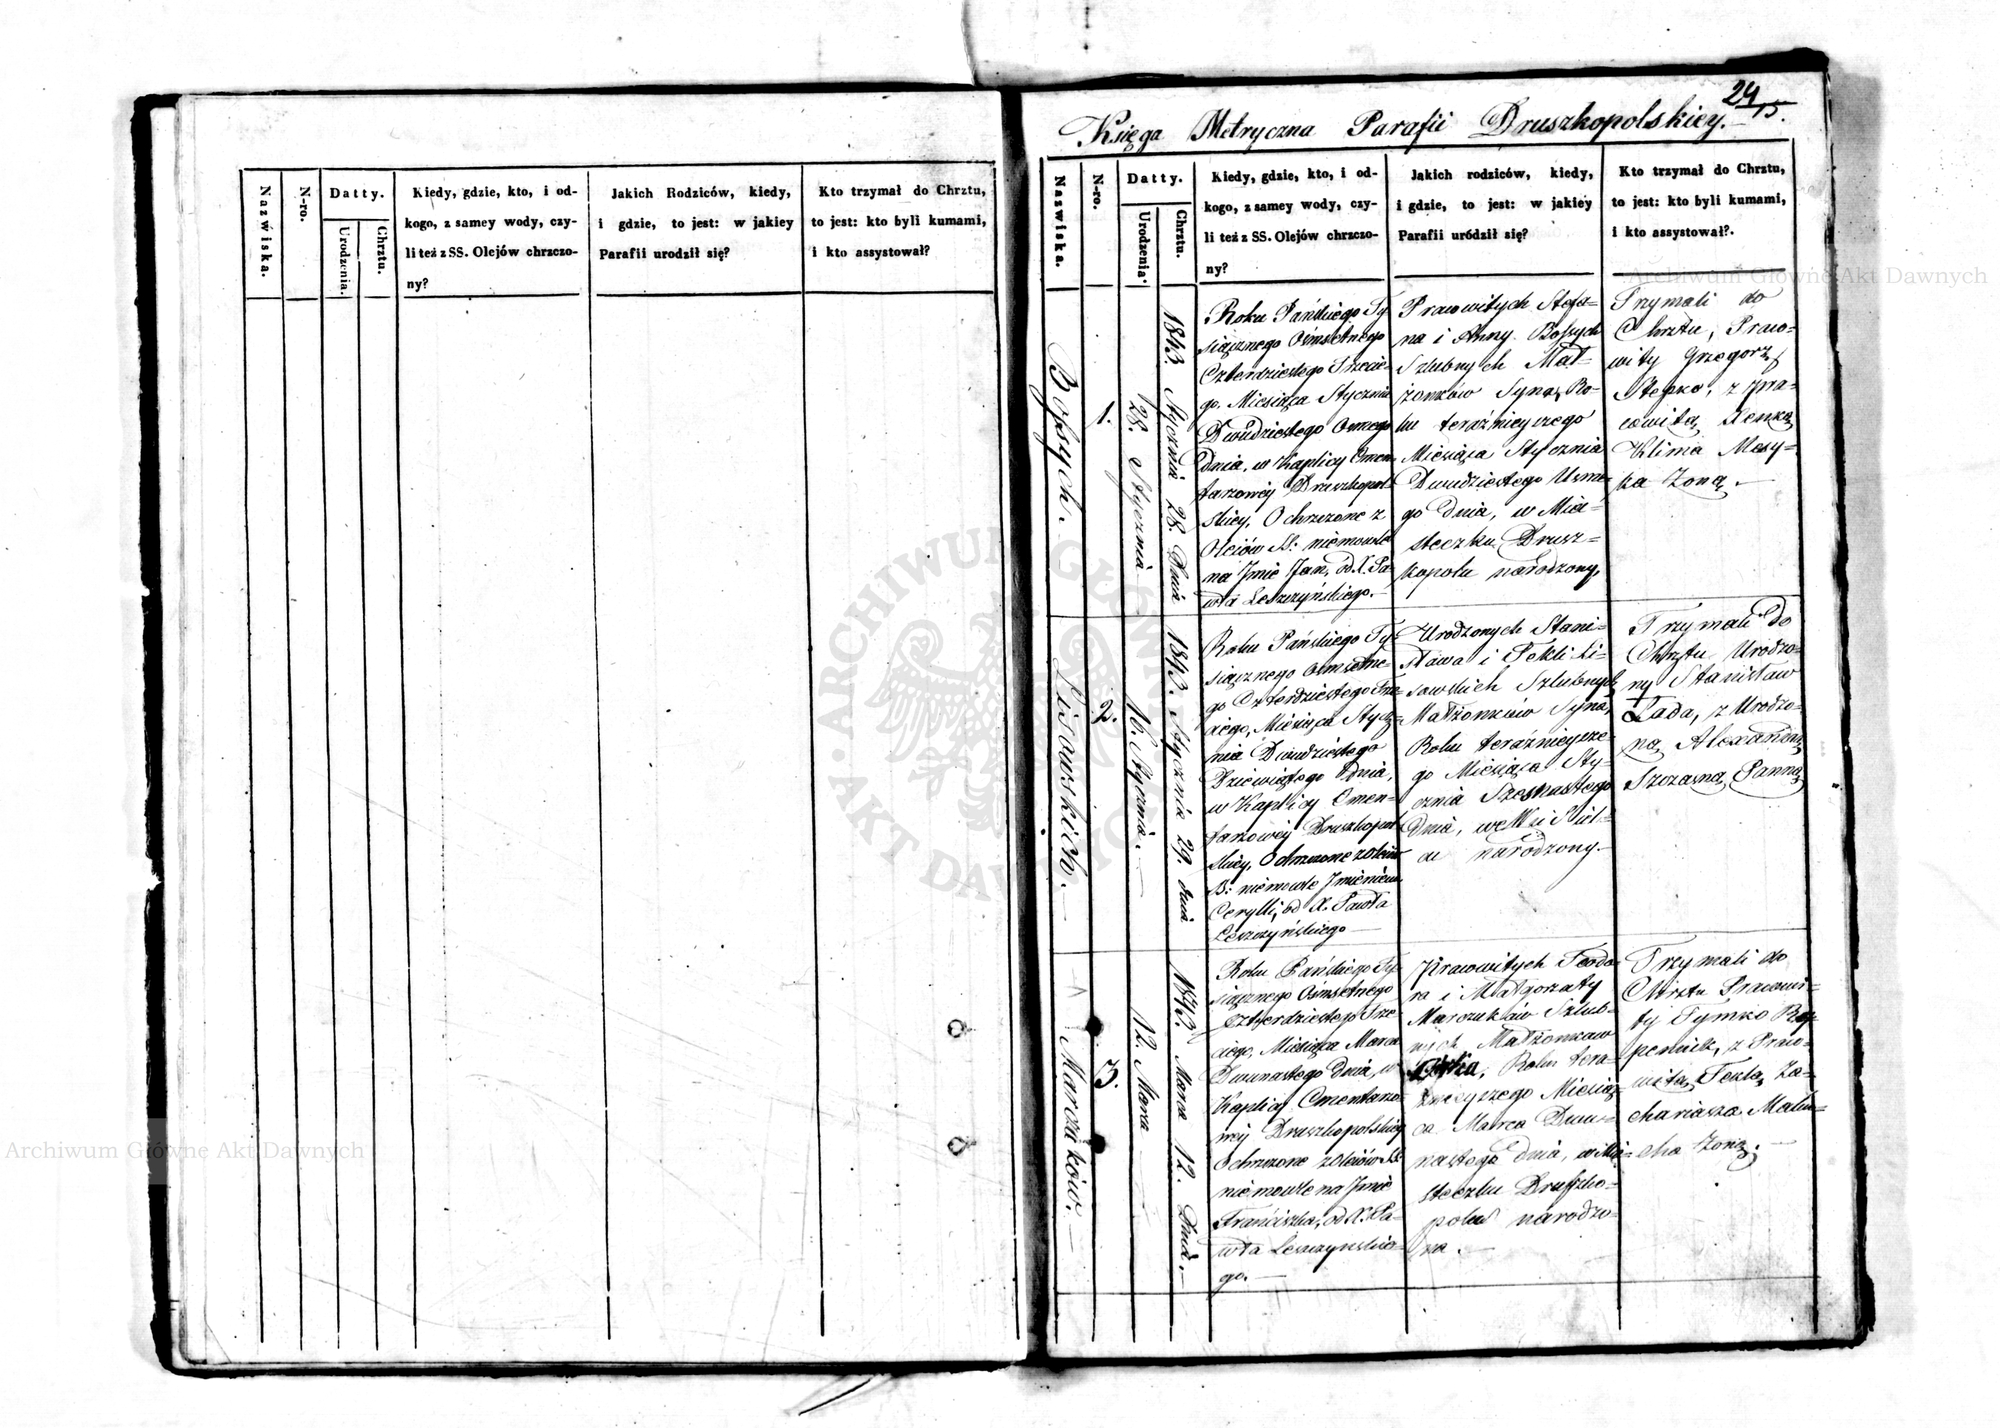 Nazwiska.
N-ro.
Datty.
Urodzenia.
Chrztu.
Kiedy, gdzie, kto, i od-
kogo, z samey wody, czy-
li też z SS. Olejów chrzczo-
ny?
Jakich Rodziców, kiedy,
i gdzie, to jest: w jakiey
Parafii urodził się?
Kto trzymał do Chrztu,
to jest: kto byli kumami,
i kto assystował?
24
15.
Księga Metryczna Parafii Druszkopolskiey.
Nazwiska.
N-ro.
Datty.
Urodzenia.
Chrztu.
Kiedy, gdzie, kto, i od-
kogo, z samey wody, czy-
li też z SS. Olejów chrzczo-
ny?
Jakich rodziców, kiedy,
i gdzie, to jest: w jakiey
Parafii uródził się?
Kto trzymał do Chrztu,
to jest: kto byli kumami,
i kto assystował?.
Bossych.
1.
28. Stycznia
1843. Stycznia 28. Dnia
Roku Pańskiego Ty-
siącznego Ośmsetnego
Czterdziestego Trzecie-
go, Miesiąca Stycznia
Dwudziestego Osmego
Dnia, w Kaplicy Cmen-
tarzowey Druszkopol-
skiey, Ochrzczone z
Oleiów SS: niemowle
na Jmie Jan, od X. Pa-
wła Leszczyńskiego.
Prawowitych Stefa-
na i Anny Bossych
Szlubnych Mał-
żonków Syna, Ro-
ku teraźnieyszego
Miesiąca Stycznia
Dwudziestego Usme-
go Dnia, w Mia-
steczku Drusz-
kopolu narodzony,
Trzymali do
Chrztu, Prawo-
wity Grzegorz
Stepko, z pra-
cowitą Xenką
Klima Mosy-
ka Zoną.
Lisowskich.
2.
16. Stycznia.
1843. Stycznia 29. dnia
Roku Pańskiego Ty-
siącznego Ośmsetne-
go Czterdziestego Trze-
ciego, Miesiąca Stycz-
nia Dwudziestego
Dziewiątego Dnia,
w Kaplicy Cmen-
tarzowey Druszkopol
skiey, Ochrzczone z oleiów
S: niemowle Jmieniem
Cerylli, od X. Pawła
Leszczyńskiego
Urodzonych Stani-
sława i Tekli Li-
sowskich Szlubnych
Małżonków Syna,
Roku teraźnieysze-
go Miesiąca Sty-
cznia Szesnastego
Dnia, we Wsi
narodzony.
Trzymali do
Chrztu Urodzo-
ny Stanisław
Łada, z Urodzo-
ną Alexandrą
Szczasną Panną
Marczuków.
3.
12. Marca
1843. Marca 12. Dnia.
Roku Pańskiego Ty-
siącznego Ośmsetnego
Czterdziestego Trze-
ciego, Miesiąca Marca
Dwunastego Dnia, w
Kaplicy Cmentarzo-
wey Druszkopolskiey
Ochrzczone z Oleiów SS.
niemowle na Jmie
Franciszka, od X. Pa-
wła Leszczyńskie-
go.
Prawowitych Teodo-
ra i Małgorzaty
Marczuków Szlub-
nych Małżonków
Roku tera-
źnieyszego Miesią-
ca Marca Dwu-
nastego dnia, w Mia-
steczku Druszko-
polu narodzo-
na.
Trzymali do
Chrztu Pracowi-
ty Tymko
z Praco-
witą Teklą Za-
chariasza
Zoną.
ARCHIWUM GŁÓWNE AKT DAWNYCH
Archiwum Główne Akt Dawnych
Archiwum Główne Akt Dawnych